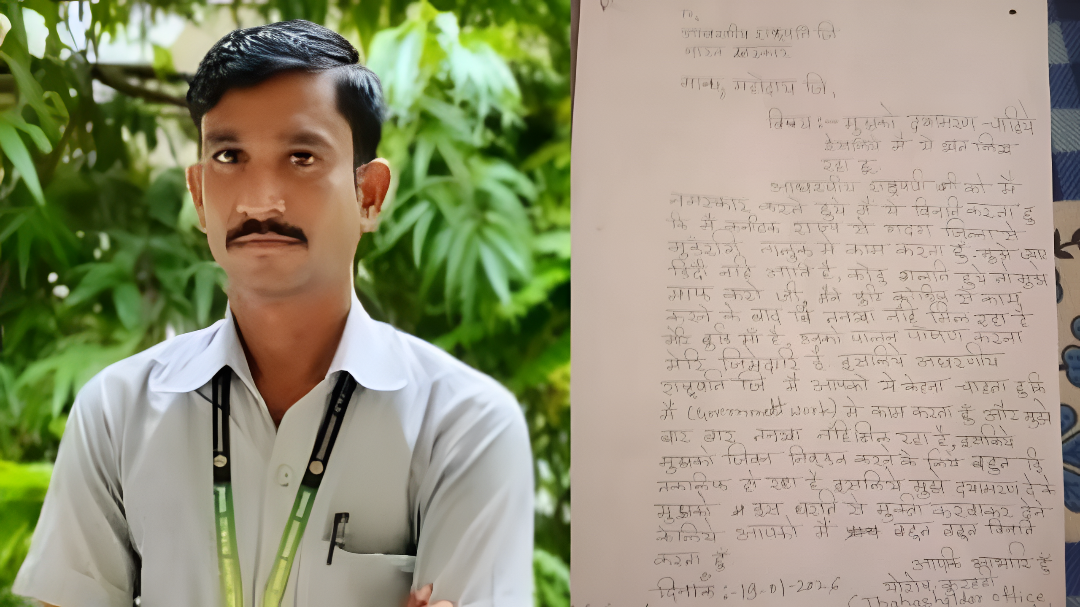 To,
आधरणीय राष्ट्रपति जि
भारत सरकार
मान्य, महोदय जि,
विषय:- मुझको दयामरण चाहिये
इसलिये मै ये खत लिख
रहा हू.
आधरणीय राष्ट्रपती जी को मै
नमस्कार करते हुये मै ये विनति करता हु
कि मै कर्नाटक राज्य से गदग जिल्ला से
मुंडरगी तालुक मे काम करता हुँ. मुझे ज्यादा
हिंदी नहि आति है, कोइ गलति हुये तो मुझे
माफ करो जी, मैने काम
करने के बाद बि तनखा नहि मिल रहा है
मेरि बुढि माँ है, उनको पालन पोषण करना
मेरि जिमेदारि है. इसलिये आधरणीय
राष्ट्रपति जि मै आपको ये केहना चाहता हु कि
मै (Government work) मे काम करता हुँ और मुझे
बार बार तनखा नहि मिल रहा है, इसलिये
मुझको जिवन करने के लिये बहुत हि
तकलिफ हो रहा है इसलिये मुझे दयामरण देके
मुझको इस धरति से मुक्ति करवाकर देने
केलिये आपको मै बहुत बहुत विनति
करता हुँ
आपके आभारि हुँ
दिनांक :-19-01-2026
(Thahashildar office,